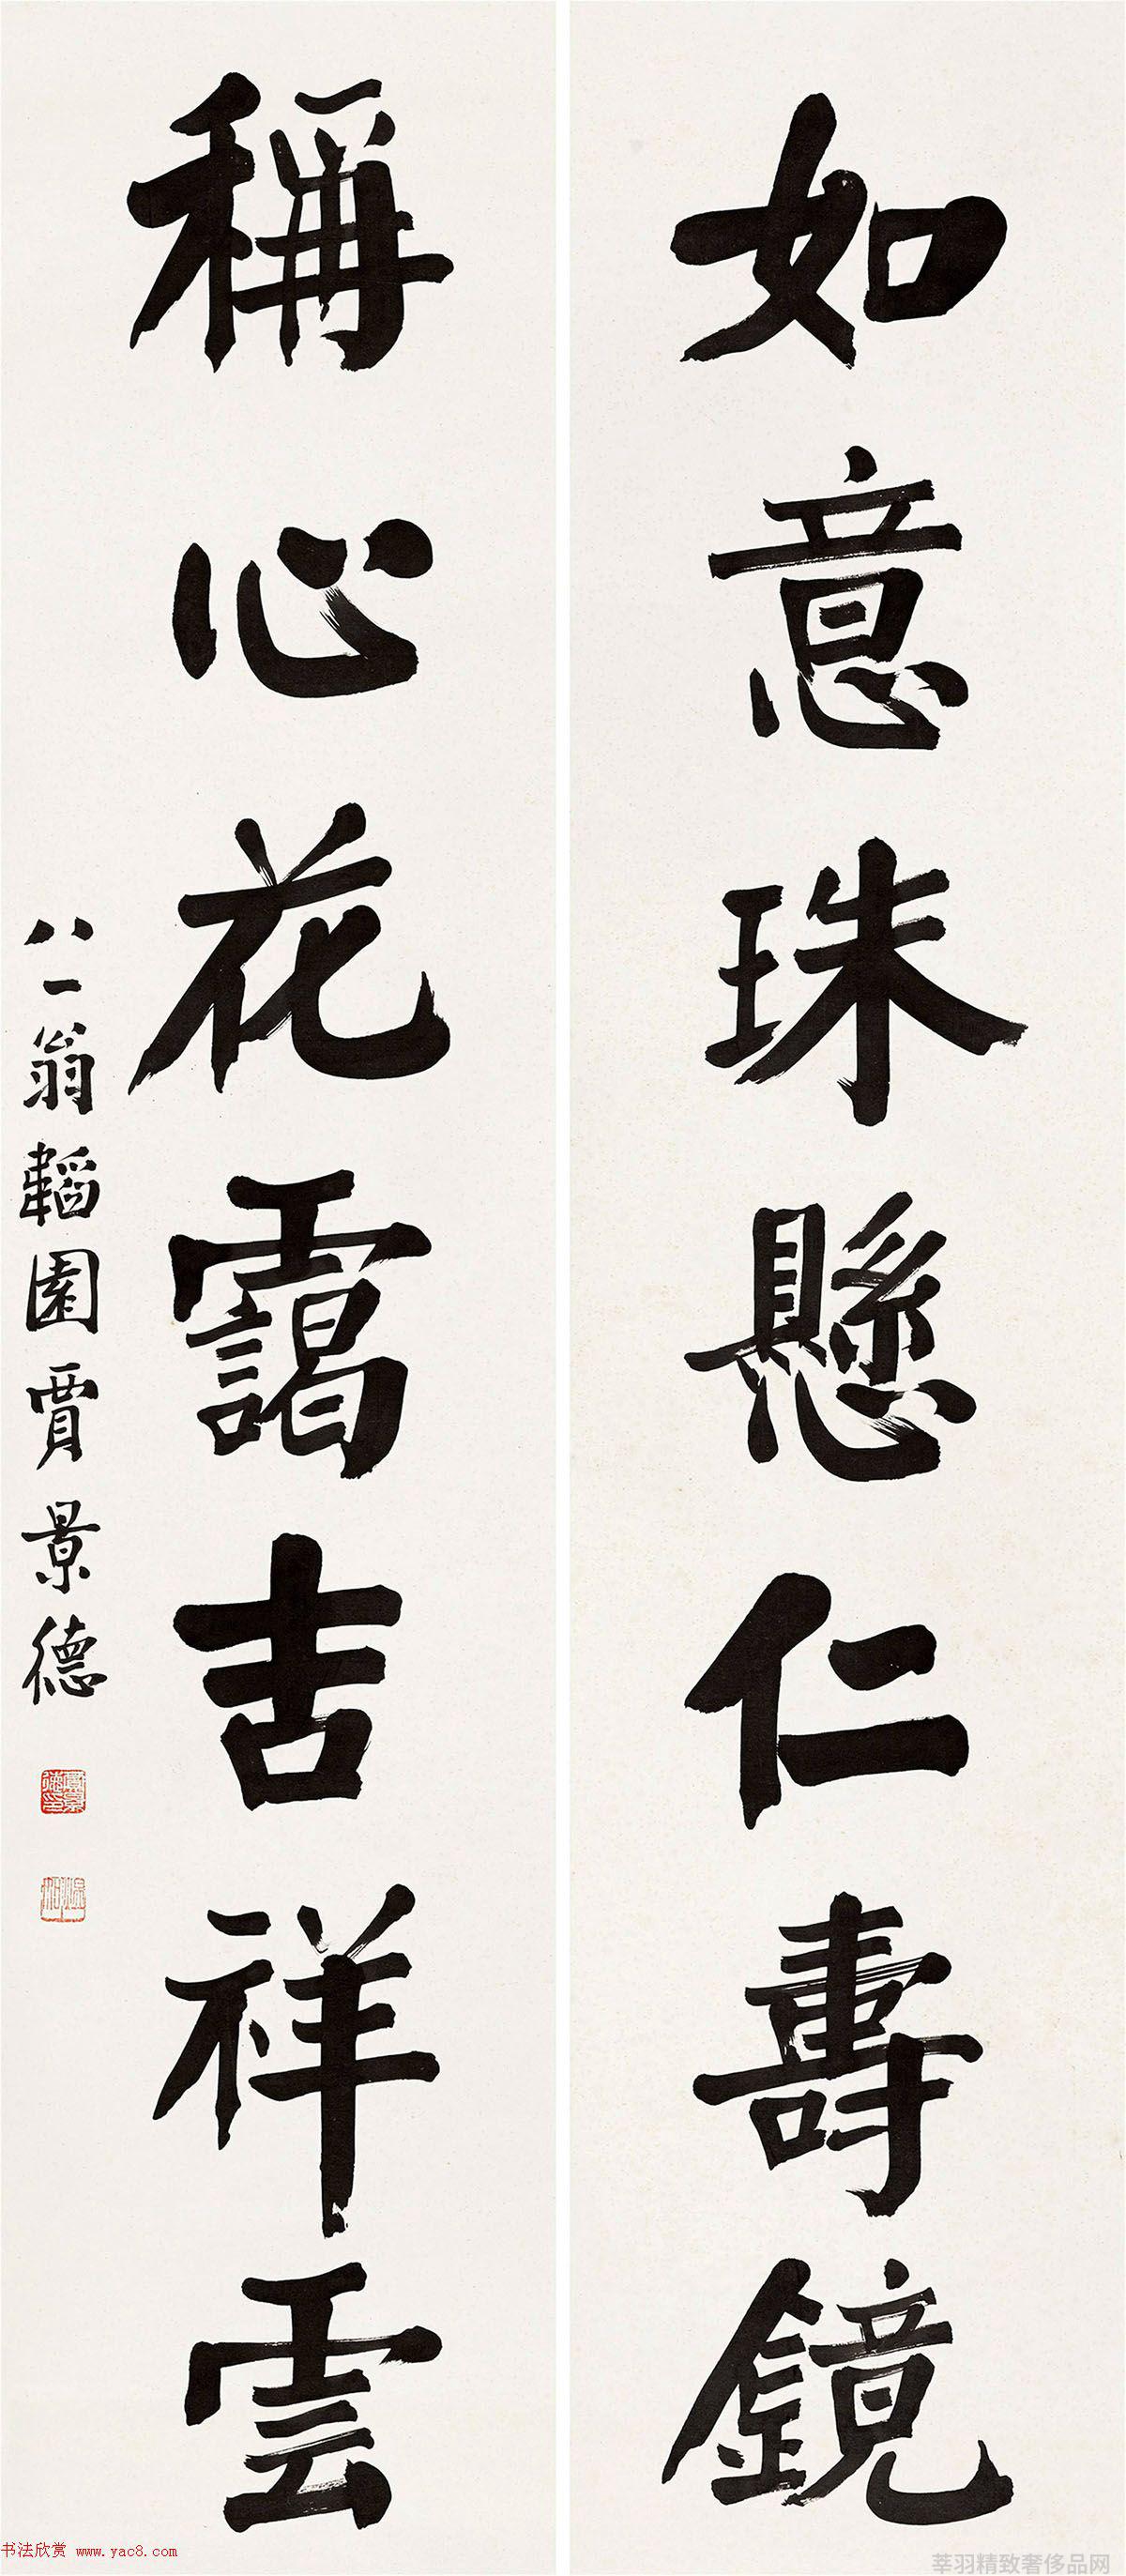 如意珠懸仁壽鏡
稱心花靄吉祥雲
八一翁韜園賈景德
书法欣赏 www.yac8.com
莘羽精致奢侈品网